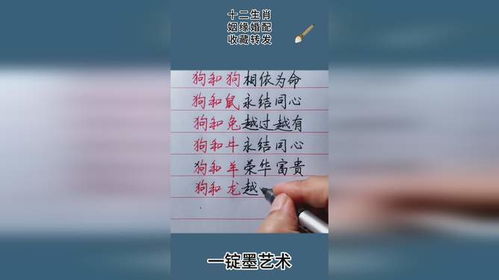 十二生肖
姻缘婚配
收藏转发
狗和狗相依为命
狗和鼠永结同心
狗和兔越过越有
狗和牛永结同心
狗和羊荣华富貴
狗和龙越
一锭墨艺术